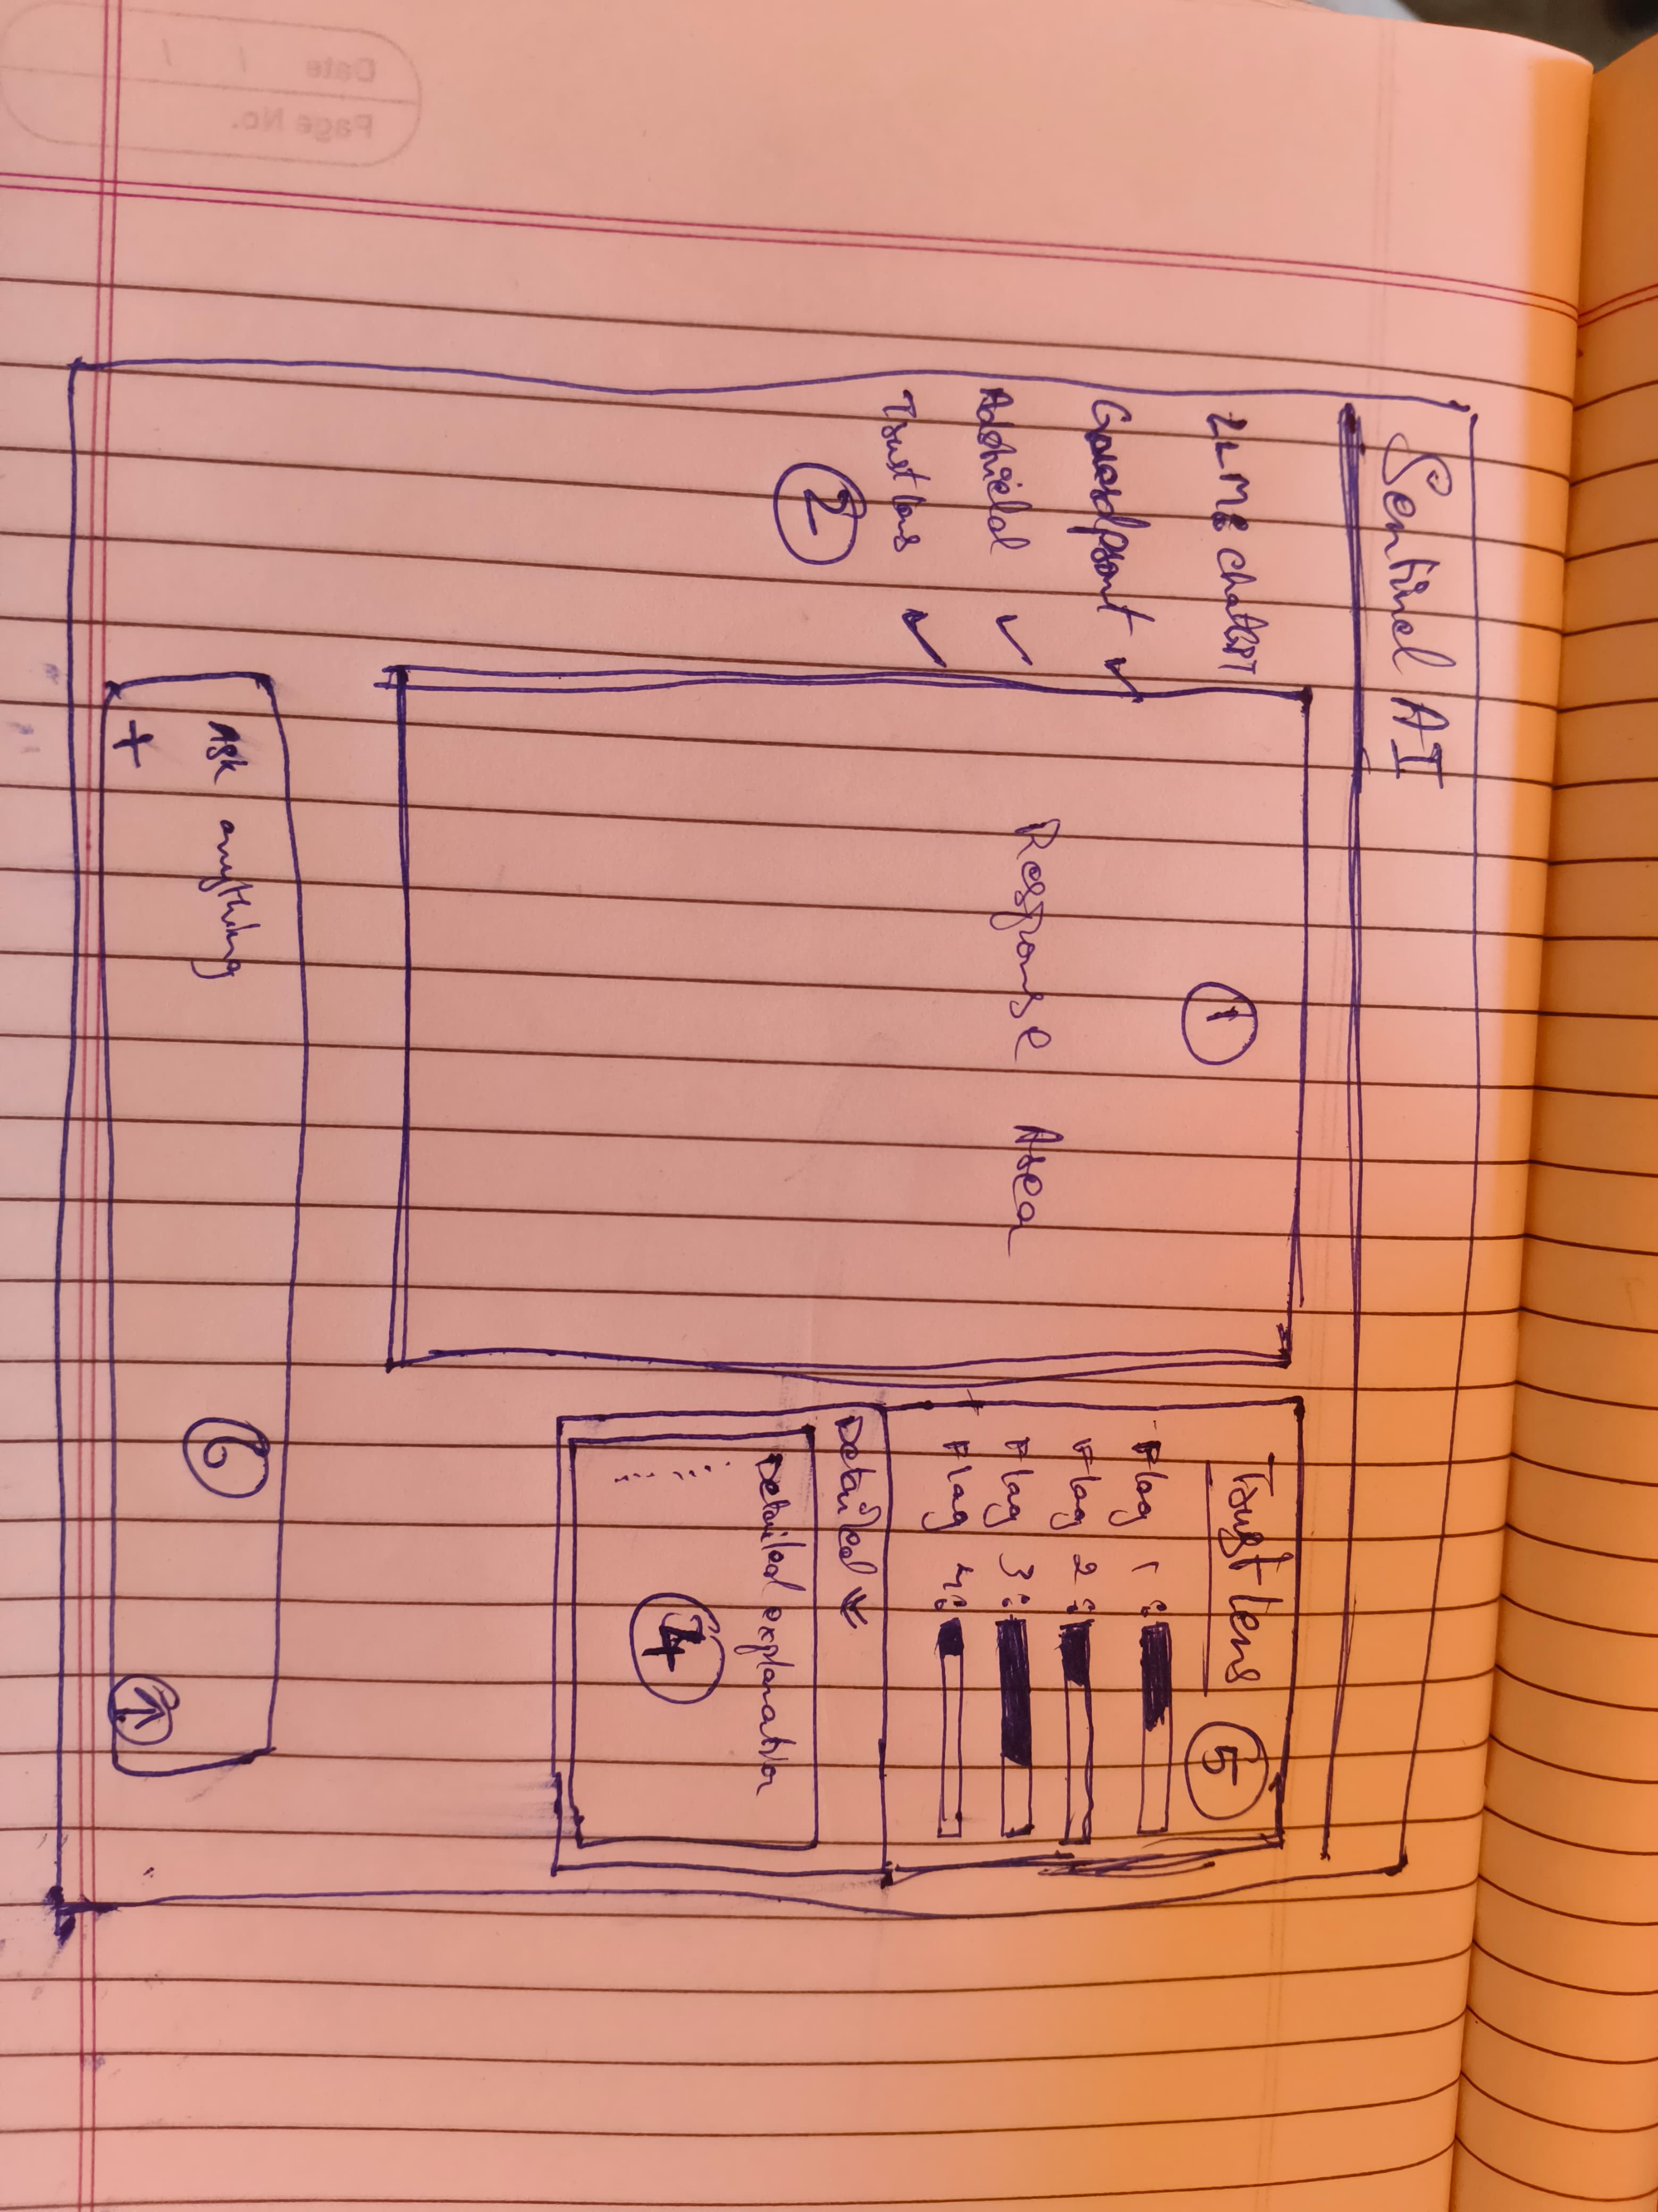 Sentinel AI
LLMs ChatGPT
Guardprompt ✓
Adshield ✓
Trustlens ✓
2
1
Response Area
Trust lens
5
Flag 1:
Flag 2:
Flag 3:
Flag 4:
Detailed
Detailed explanation
4
Ask anything
+
6
Date / /
Page No.